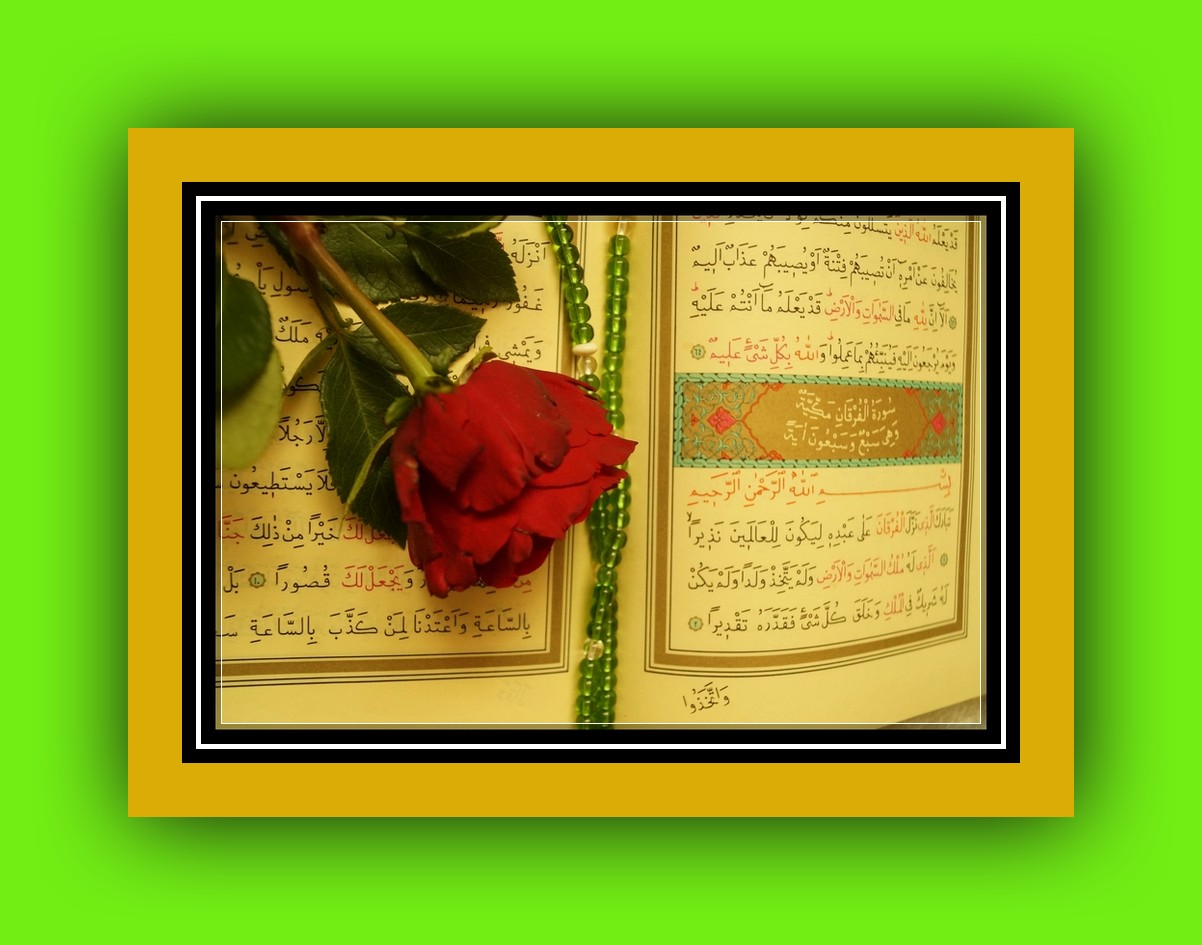 قَدْ يَعْلَمُ اللّٰهُ الَّذ۪ينَ يَتَسَلَّلُونَ مِنْكُمْ
يُخَالِفُونَ عَنْ اَمْرِه۪ٓ اَنْ تُص۪يبَهُمْ فِتْنَةٌ اَوْ يُص۪يبَهُمْ عَذَابٌ اَل۪يمٌ
اَلَٓا اِنَّ لِلّٰهِ مَا فِي السَّمٰوَاتِ وَالْاَرْضِ قَدْ يَعْلَمُ مَٓا اَنْتُمْ عَلَيْهِ
وَيَوْمَ يُرْجَعُونَ اِلَيْهِ فَيُنَبِّئُهُمْ بِمَا عَمِلُوا وَاللّٰهُ بِكُلِّ شَيْءٍ عَل۪يمٌ ٦٤
سُورَةُ الْفُرْقَانِ مَكِّيَّةٌ
وَهِيَ سَبْعٌ وَسَبْعُونَ اٰيَةً
بِسْمِ اللّٰهِ الرَّحْمٰنِ الرَّح۪يمِ
تَبَارَكَ الَّذ۪ي نَزَّلَ الْفُرْقَانَ عَلٰى عَبْدِه۪ لِيَكُونَ لِلْعَالَم۪ينَ نَذ۪يرًا
١ اَلَّذ۪ي لَهُ مُلْكُ السَّمٰوَاتِ وَالْاَرْضِ وَلَمْ يَتَّخِذْ وَلَدًا وَلَمْ يَكُنْ
لَهُ شَر۪يكٌ فِي الْمُلْكِ وَخَلَقَ كُلَّ شَيْءٍ فَقَدَّرَهُ تَقْد۪يرًا ٢
وَاتَّخَذُوا
اَنْزَلَهُ
غَفُورًا
الرَّسُولِ يَأْ
وَيَمْش۪ي
مَلَكٌ
اِلَّا رَجُلًا
فَلَا يَسْتَط۪يعُونَ
جَعَلَ لَكَ خَيْرًا مِنْ ذٰلِكَ جَنَّا
مِنْ وَيَجْعَلْ لَكَ قُصُورًا ١٠ بَلْ
بِالسَّاعَةِ وَاَعْتَدْنَا لِمَنْ كَذَّبَ بِالسَّاعَةِ